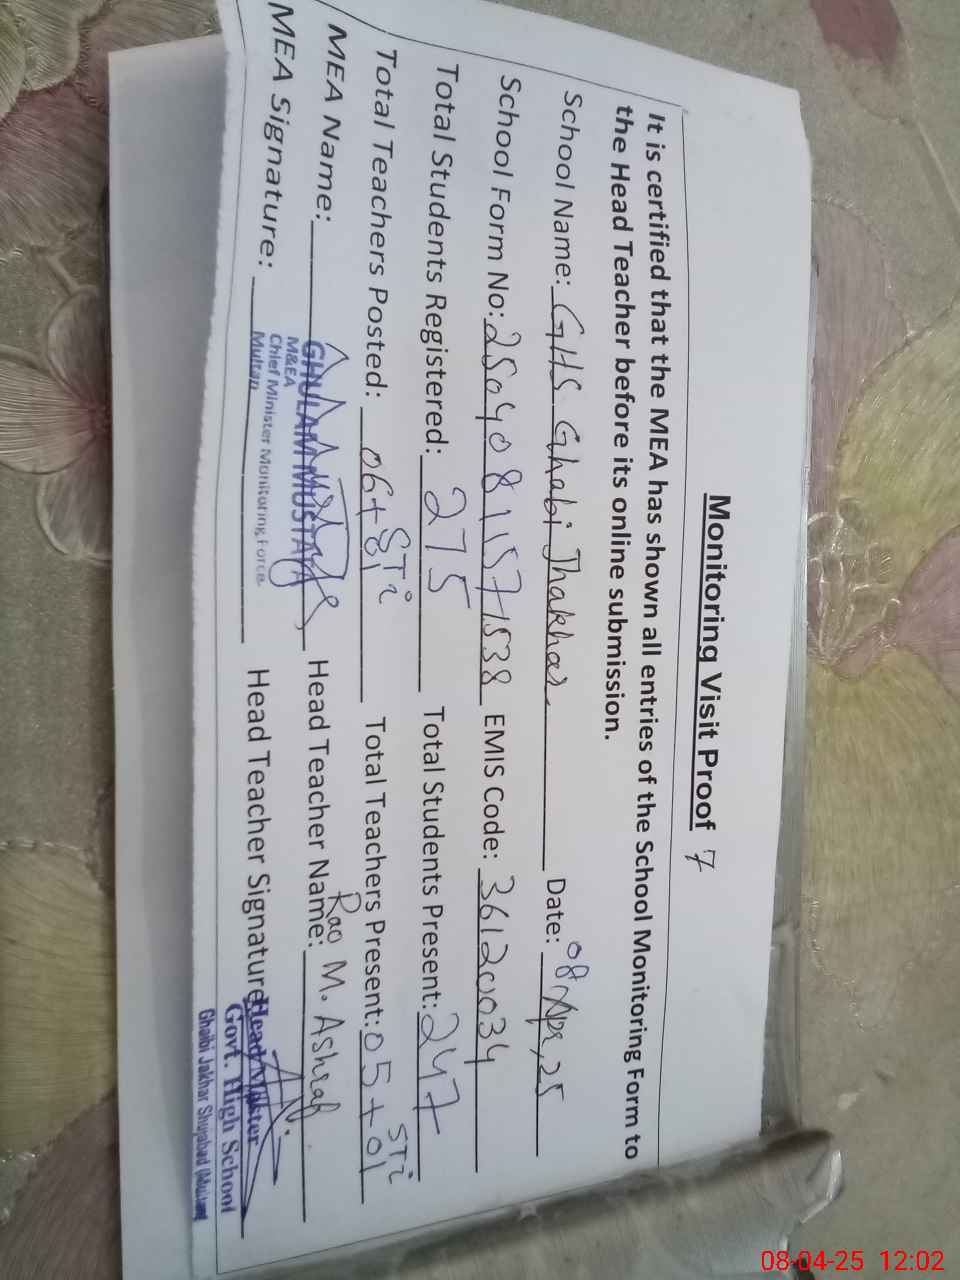 Monitoring Visit Proof 7
It is certified that the MEA has shown all entries of the School Monitoring Form to
the Head Teacher before its online submission.
School Name: GHS Ghabi Jhakhar Date: 08 Apr, 25
School Form No: 25040811571538 EMIS Code: 36120034
Total Students Registered: 275 Total Students Present: 247
Total Teachers Posted: 06+ STi Total Teachers Present: 05+01 STi
MEA Name: GHULAM MUSTAFA Head Teacher Name: Rao M. Ashraf
M&EA
Chief Minister Monitoring Force
Multan
MEA Signature: Head Teacher Signature:
Head Master
Govt. High School
Ghaibi Jakhar Shujabad (Multan)
08-04-25 12:02